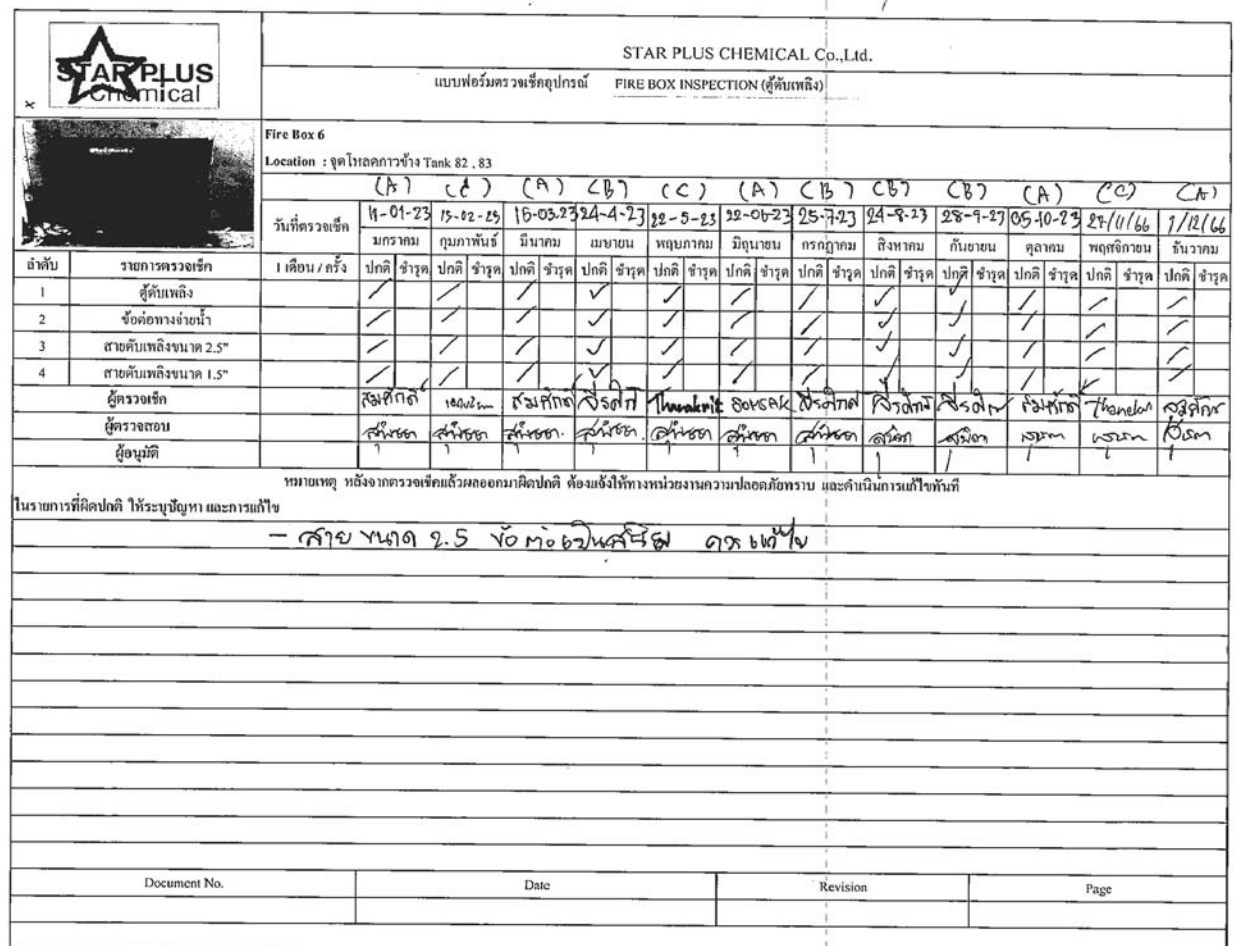 STAR PLUS
Chemical
STAR PLUS CHEMICAL Co.,Ltd.
แบบฟอร์มตรวจเช็คอุปกรณ์ FIRE BOX INSPECTION (ตู้ดับเพลิง)
Fire Box 6
Location : จุดโหลดกาวข้าง Tank 82 , 83
(A) (C) (A) (B) (C) (A) (B) (B) (B) (A) (C) (A)
วันที่ตรวจเช็ค 11-01-23 15-02-23 15-03-23 24-4-23 22-5-23 22-06-23 25-7-23 24-8-23 28-9-23 05-10-23 27/11/66 1/12/66
มกราคม กุมภาพันธ์ มีนาคม เมษายน พฤษภาคม มิถุนายน กรกฎาคม สิงหาคม กันยายน ตุลาคม พฤศจิกายน ธันวาคม
ลำดับ รายการตรวจเช็ค 1 เดือน / ครั้ง ปกติ ชำรุด ปกติ ชำรุด ปกติ ชำรุด ปกติ ชำรุด ปกติ ชำรุด ปกติ ชำรุด ปกติ ชำรุด ปกติ ชำรุด ปกติ ชำรุด ปกติ ชำรุด ปกติ ชำรุด ปกติ ชำรุด
1 ตู้ดับเพลิง
2 ข้อต่อทางจ่ายน้ำ
3 สายดับเพลิงขนาด 2.5"
4 สายดับเพลิงขนาด 1.5"
ผู้ตรวจเช็ค สมศักดิ์ สมศักดิ์ Thanakrit SOMSAK สมศักดิ์
ผู้ตรวจสอบ
ผู้อนุมัติ
หมายเหตุ หลังจากตรวจเช็คแล้วผลออกมาผิดปกติ ต้องแจ้งให้ทางหน่วยงานความปลอดภัยทราบ และดำเนินการแก้ไขทันที
ในรายการที่ผิดปกติ ให้ระบุปัญหา และการแก้ไข
- สาย ขนาด 2.5 ข้อต่อเป็นสนิม ควรแก้ไข
Document No. Date Revision Page